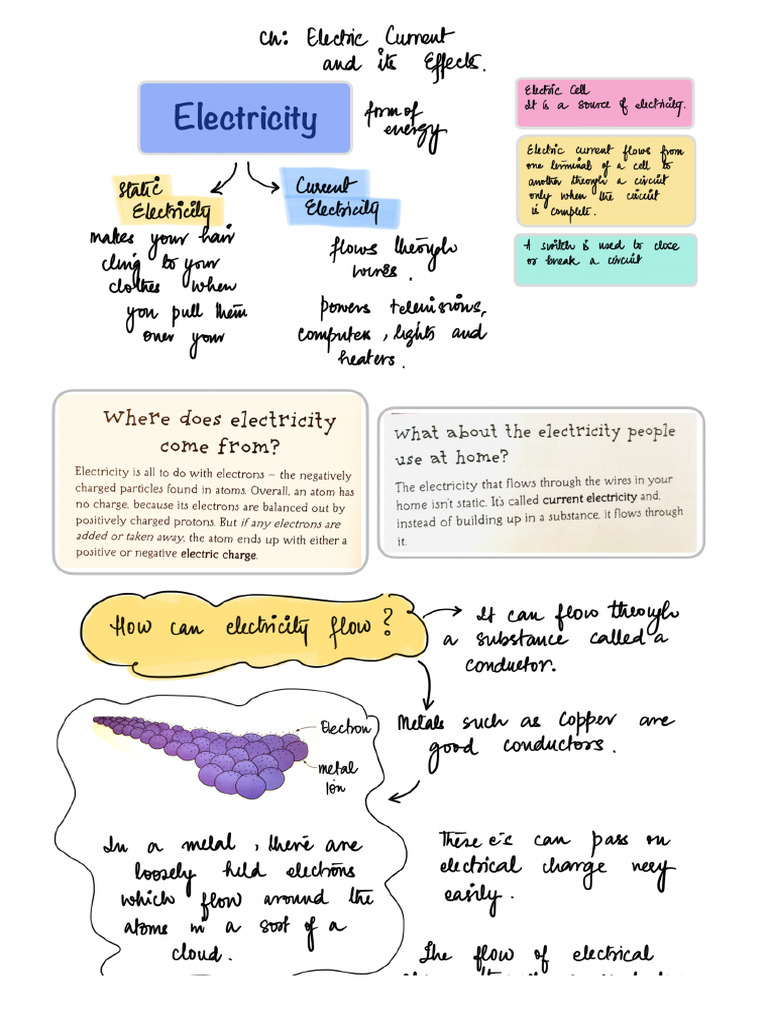 Ch: Electric Current
and its Effects.
Electricity
form of
energy
Electric Cell
It is a source of electricity.
Electric current flows from
one terminal of a cell to
another through a circuit
only when the circuit
is complete.
A switch is used to close
or break a circuit
Static
Electricity
makes your hair
cling to your
clothes when
you pull them
over your
Current
Electricity
flows through
wires.
powers televisions,
computer, lights and
heaters.
Where does electricity
come from?
Electricity is all to do with electrons – the negatively
charged particles found in atoms. Overall, an atom has
no charge, because its electrons are balanced out by
positively charged protons. But if any electrons are
added or taken away, the atom ends up with either a
positive or negative electric charge.
What about the electricity people
use at home?
The electricity that flows through the wires in your
home isn't static. It's called current electricity and,
instead of building up in a substance, it flows through
it.
How can electricity flow?
It can flow through
a substance called a
conductor.
Metals such as Copper are
good conductors.
Electron
metal
Ion
In a metal, there are
loosely held electrons
which flow around the
atoms in a sort of a
cloud.
These e's can pass on
electrical charge very
easily.
The flow of electrical